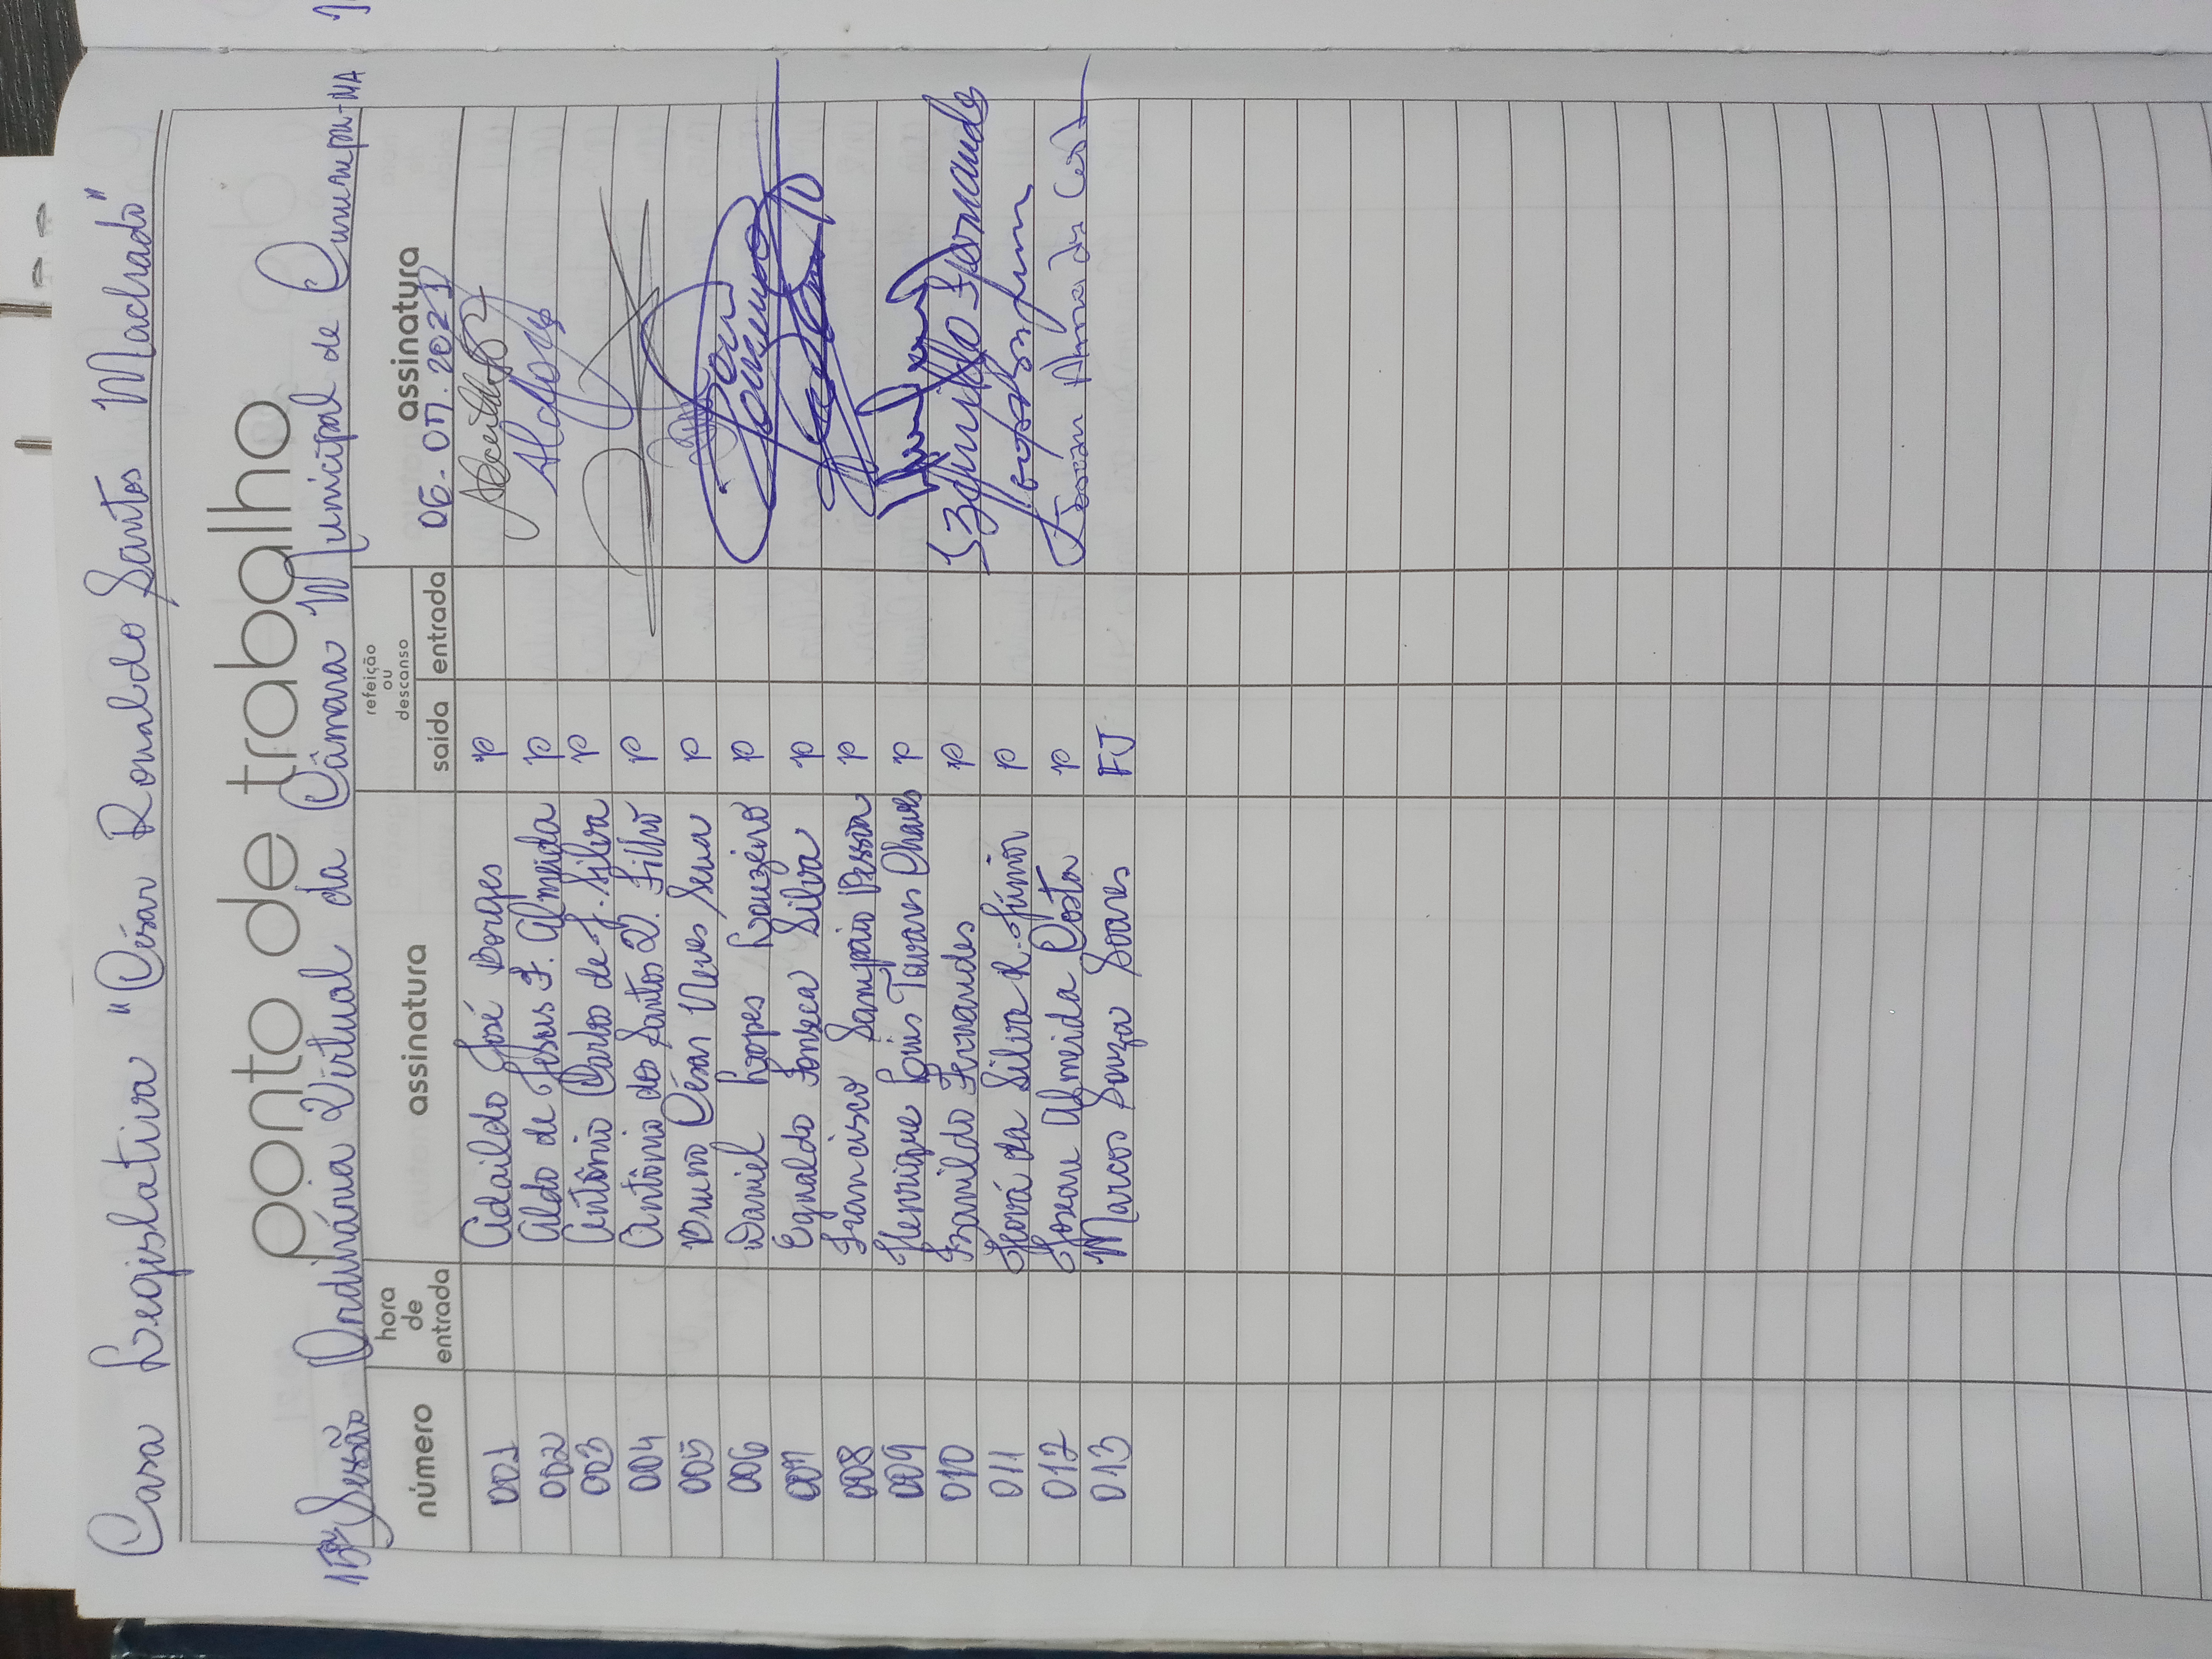 Casa Legislativa "César Ronaldo Santos Machado"
ponto de trabalho
15ª Sessão Ordinária Virtual da Câmara Municipal de Cururupu-MA
número hora de entrada assinatura refeição ou descanso saída entrada assinatura
06.07.2021
001 Adaildo José Borges P
002 Aldo de Jesus F. Almeida P
003 Antônio Carlos de J. Silva P
004 Antônio dos Santos V. Filho P
005 Bruno César Neves Sena P
006 Daniel Lopes Louzeiro P
007 Egnaldo Fonseca Silva P
008 Francisco Sampaio Pessoa P
009 Henrique Luis Tavares Chaves P
010 Izanildo Fernandes P Izanildo Fernandes
011 Jeová da Silva R. Júnior P
012 Josean Almeida Costa P Josean Almeida Costa
013 Marcos Souza Soares FJ